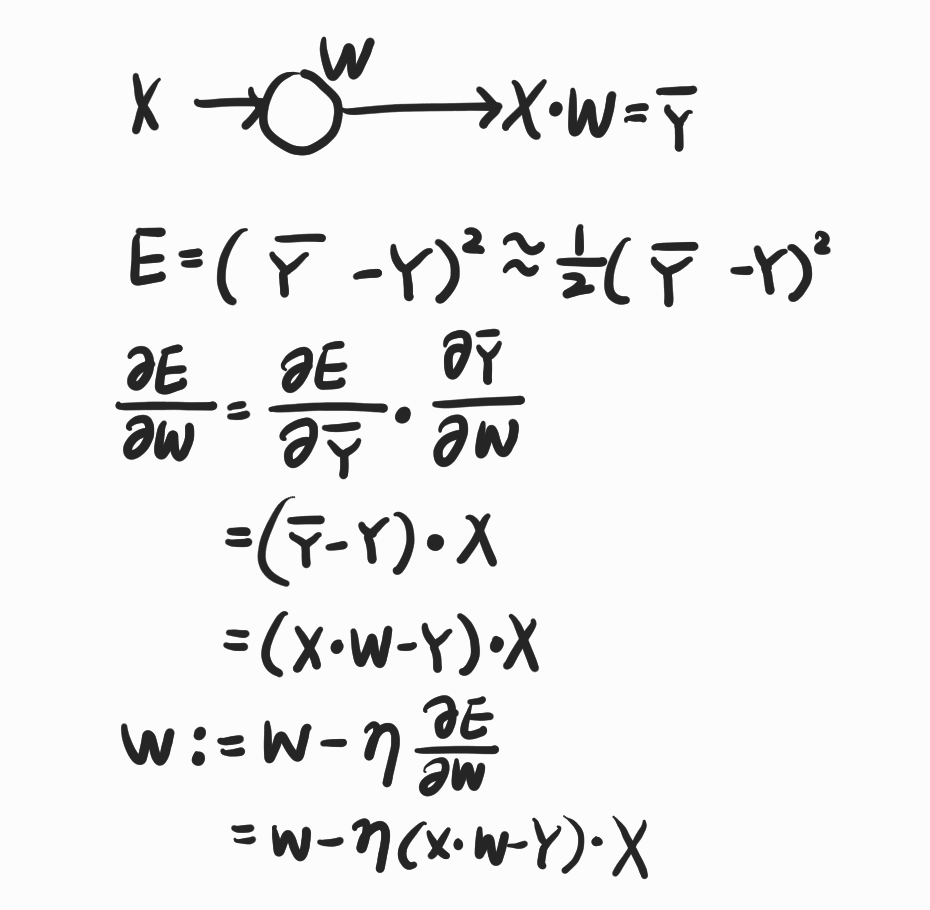 X → ○ W → X·W = Ȳ
E = (Ȳ - Y)² ≈ 1/2 (Ȳ - Y)²
∂E/∂W = ∂E/∂Ȳ · ∂Ȳ/∂W
= (Ȳ - Y) · X
= (X·W - Y) · X
W := W - η ∂E/∂W
= W - η (X·W - Y) · X